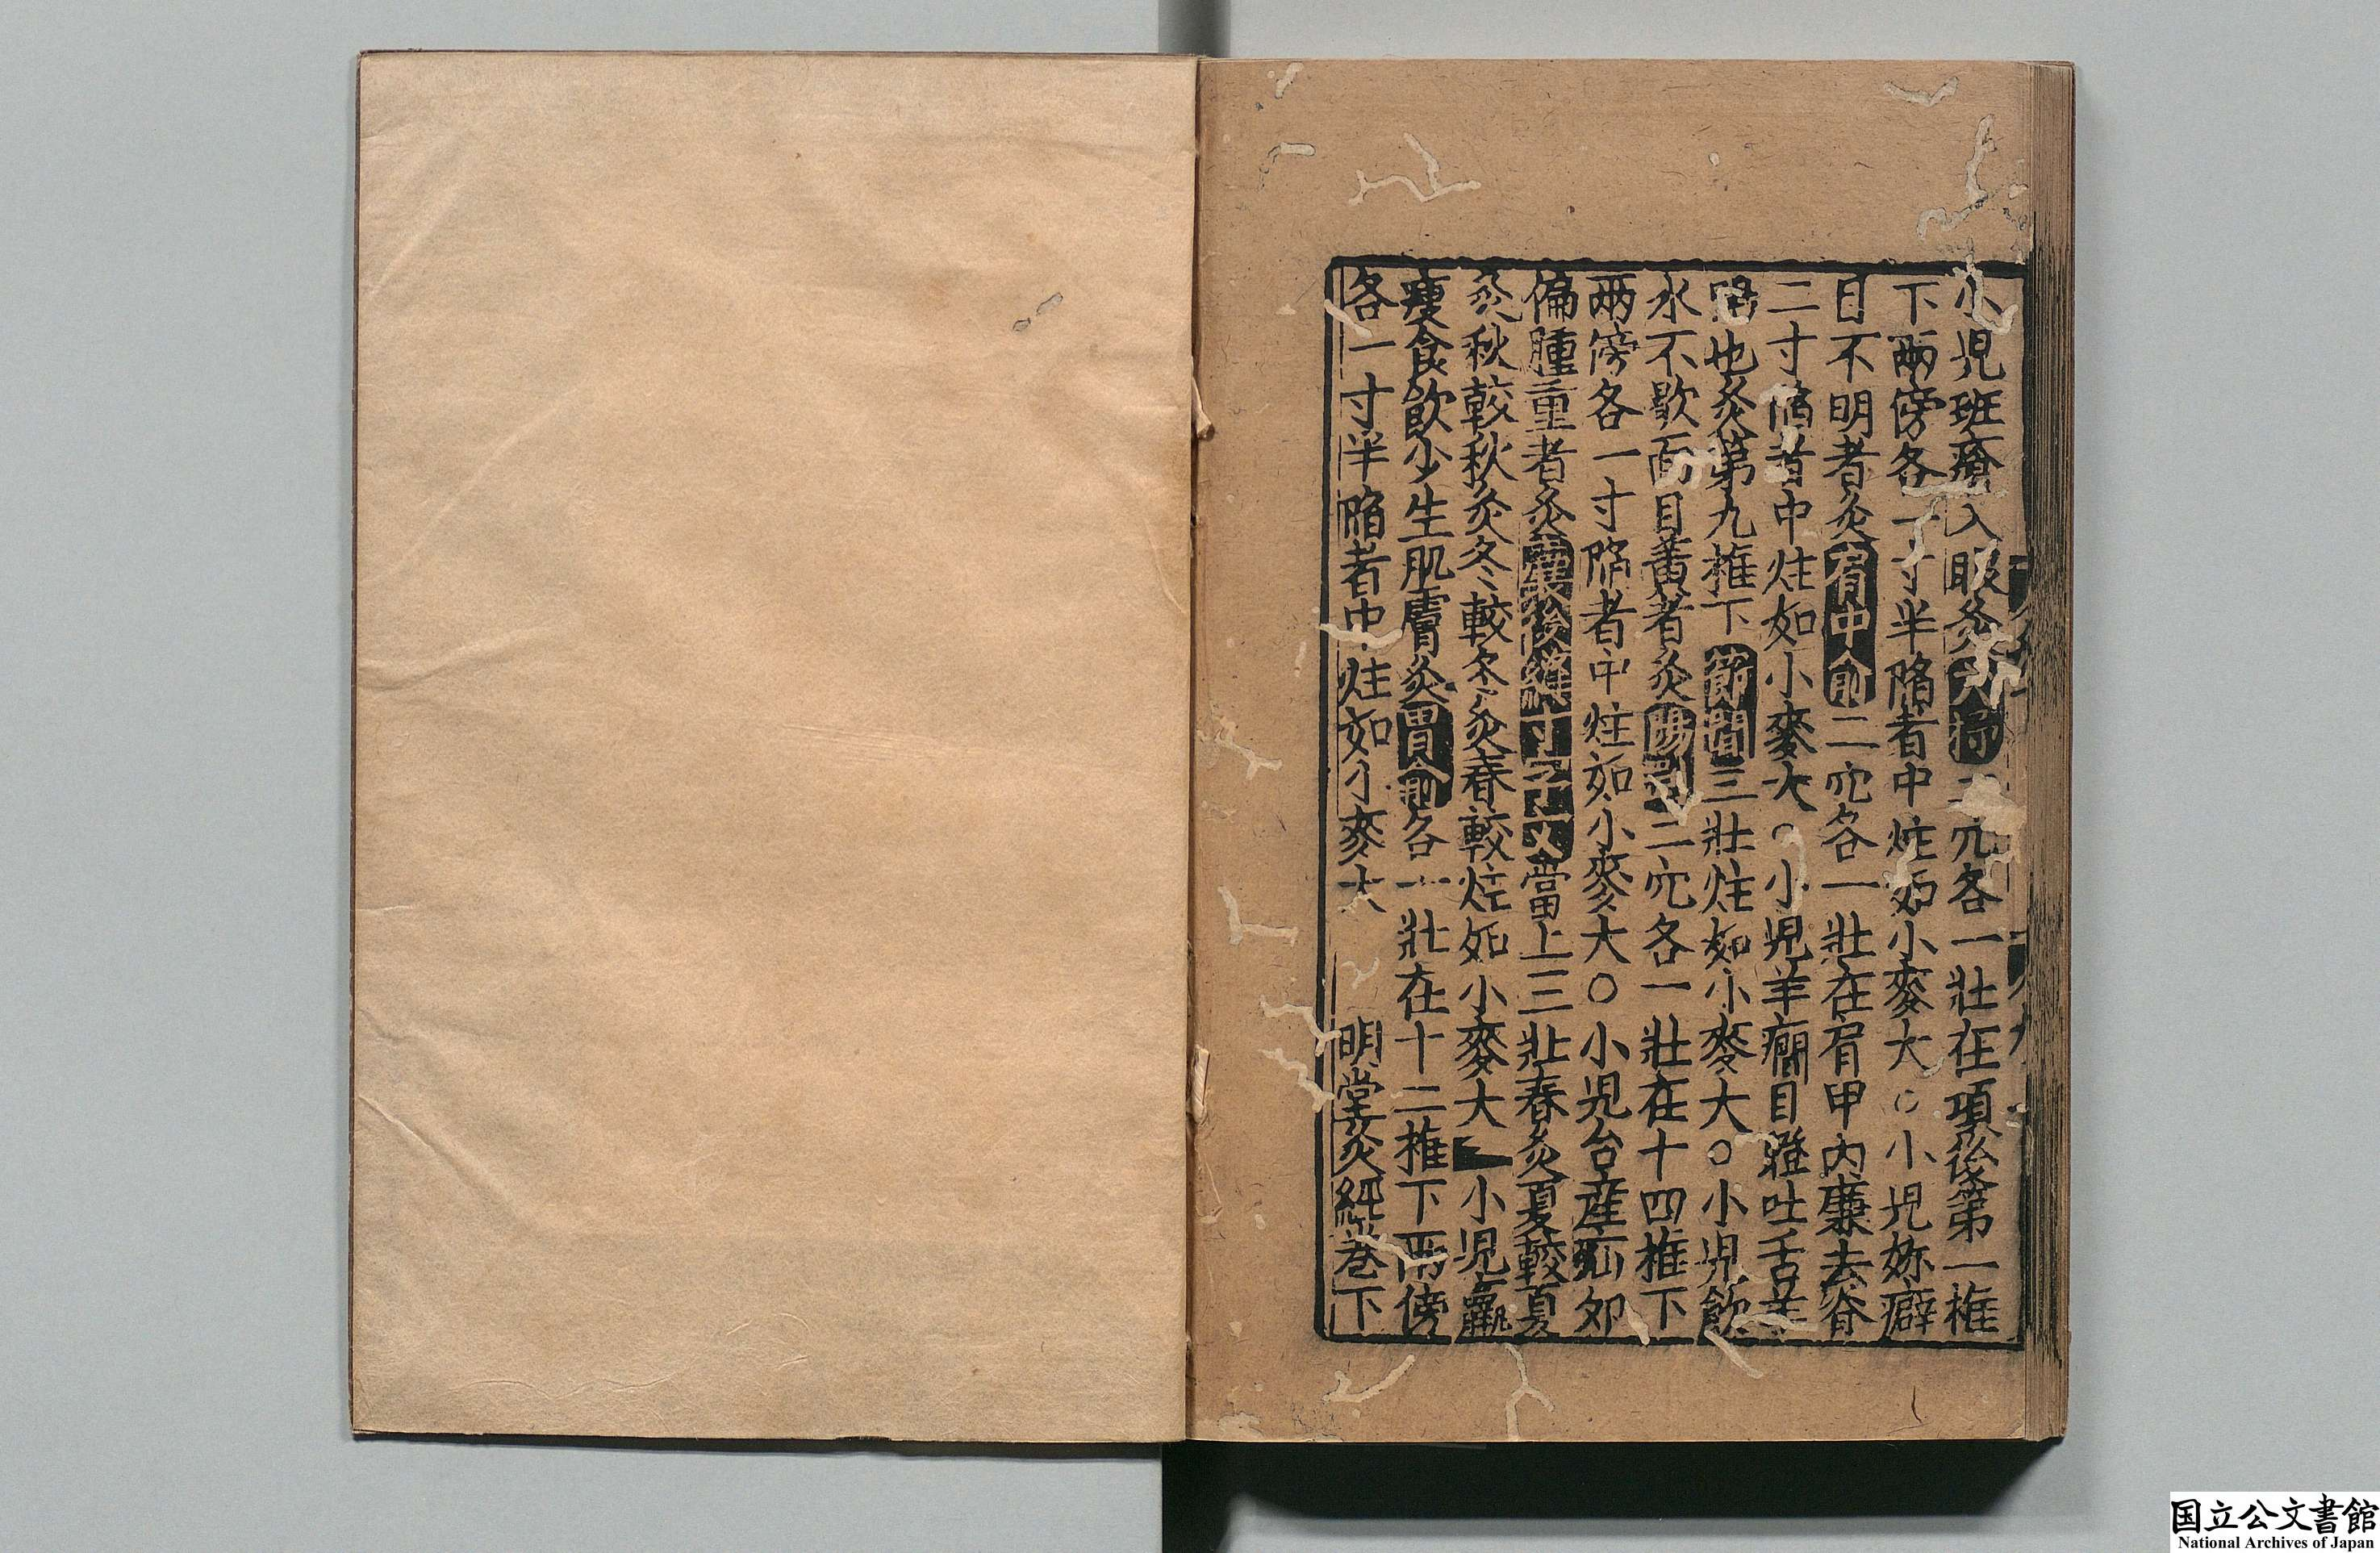 小児班瘡入眼灸大杼二穴各一壯在項後第一椎
下兩傍各一寸半陷者中炷如小麥大○小児妳癖
目不明者灸肩中俞二穴各一壯在肩甲內廉去脊
二寸陷者中炷如小麥大○小児羊癇目瞪吐舌羊
鳴也灸第九椎下節間三壯炷如小麥大○小児飲
水不歇面目黃者灸陽剛二穴各一壯在十四椎下
兩傍各一寸陷者中炷如小麥大○小児台產疝卵
偏腫重者灸囊後縫十字文當上三壯春灸夏較夏
灸秋較秋灸冬較冬灸春較炷如小麥大 小児羸
瘦食飲少生肌膚灸胃俞各一壯在十二椎下兩傍
各一寸半陷者中炷如小麥大 明堂灸經卷下
国立公文書館
National Archives of Japan